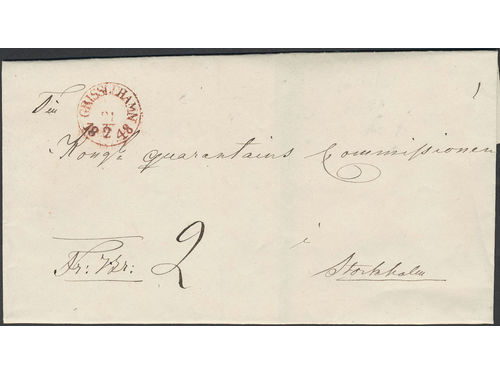 GRISSLEHAMN
21
18 2 48
Till
Kongl. quarantains Commissionen
i
Fr: Br: 2
Stockholm